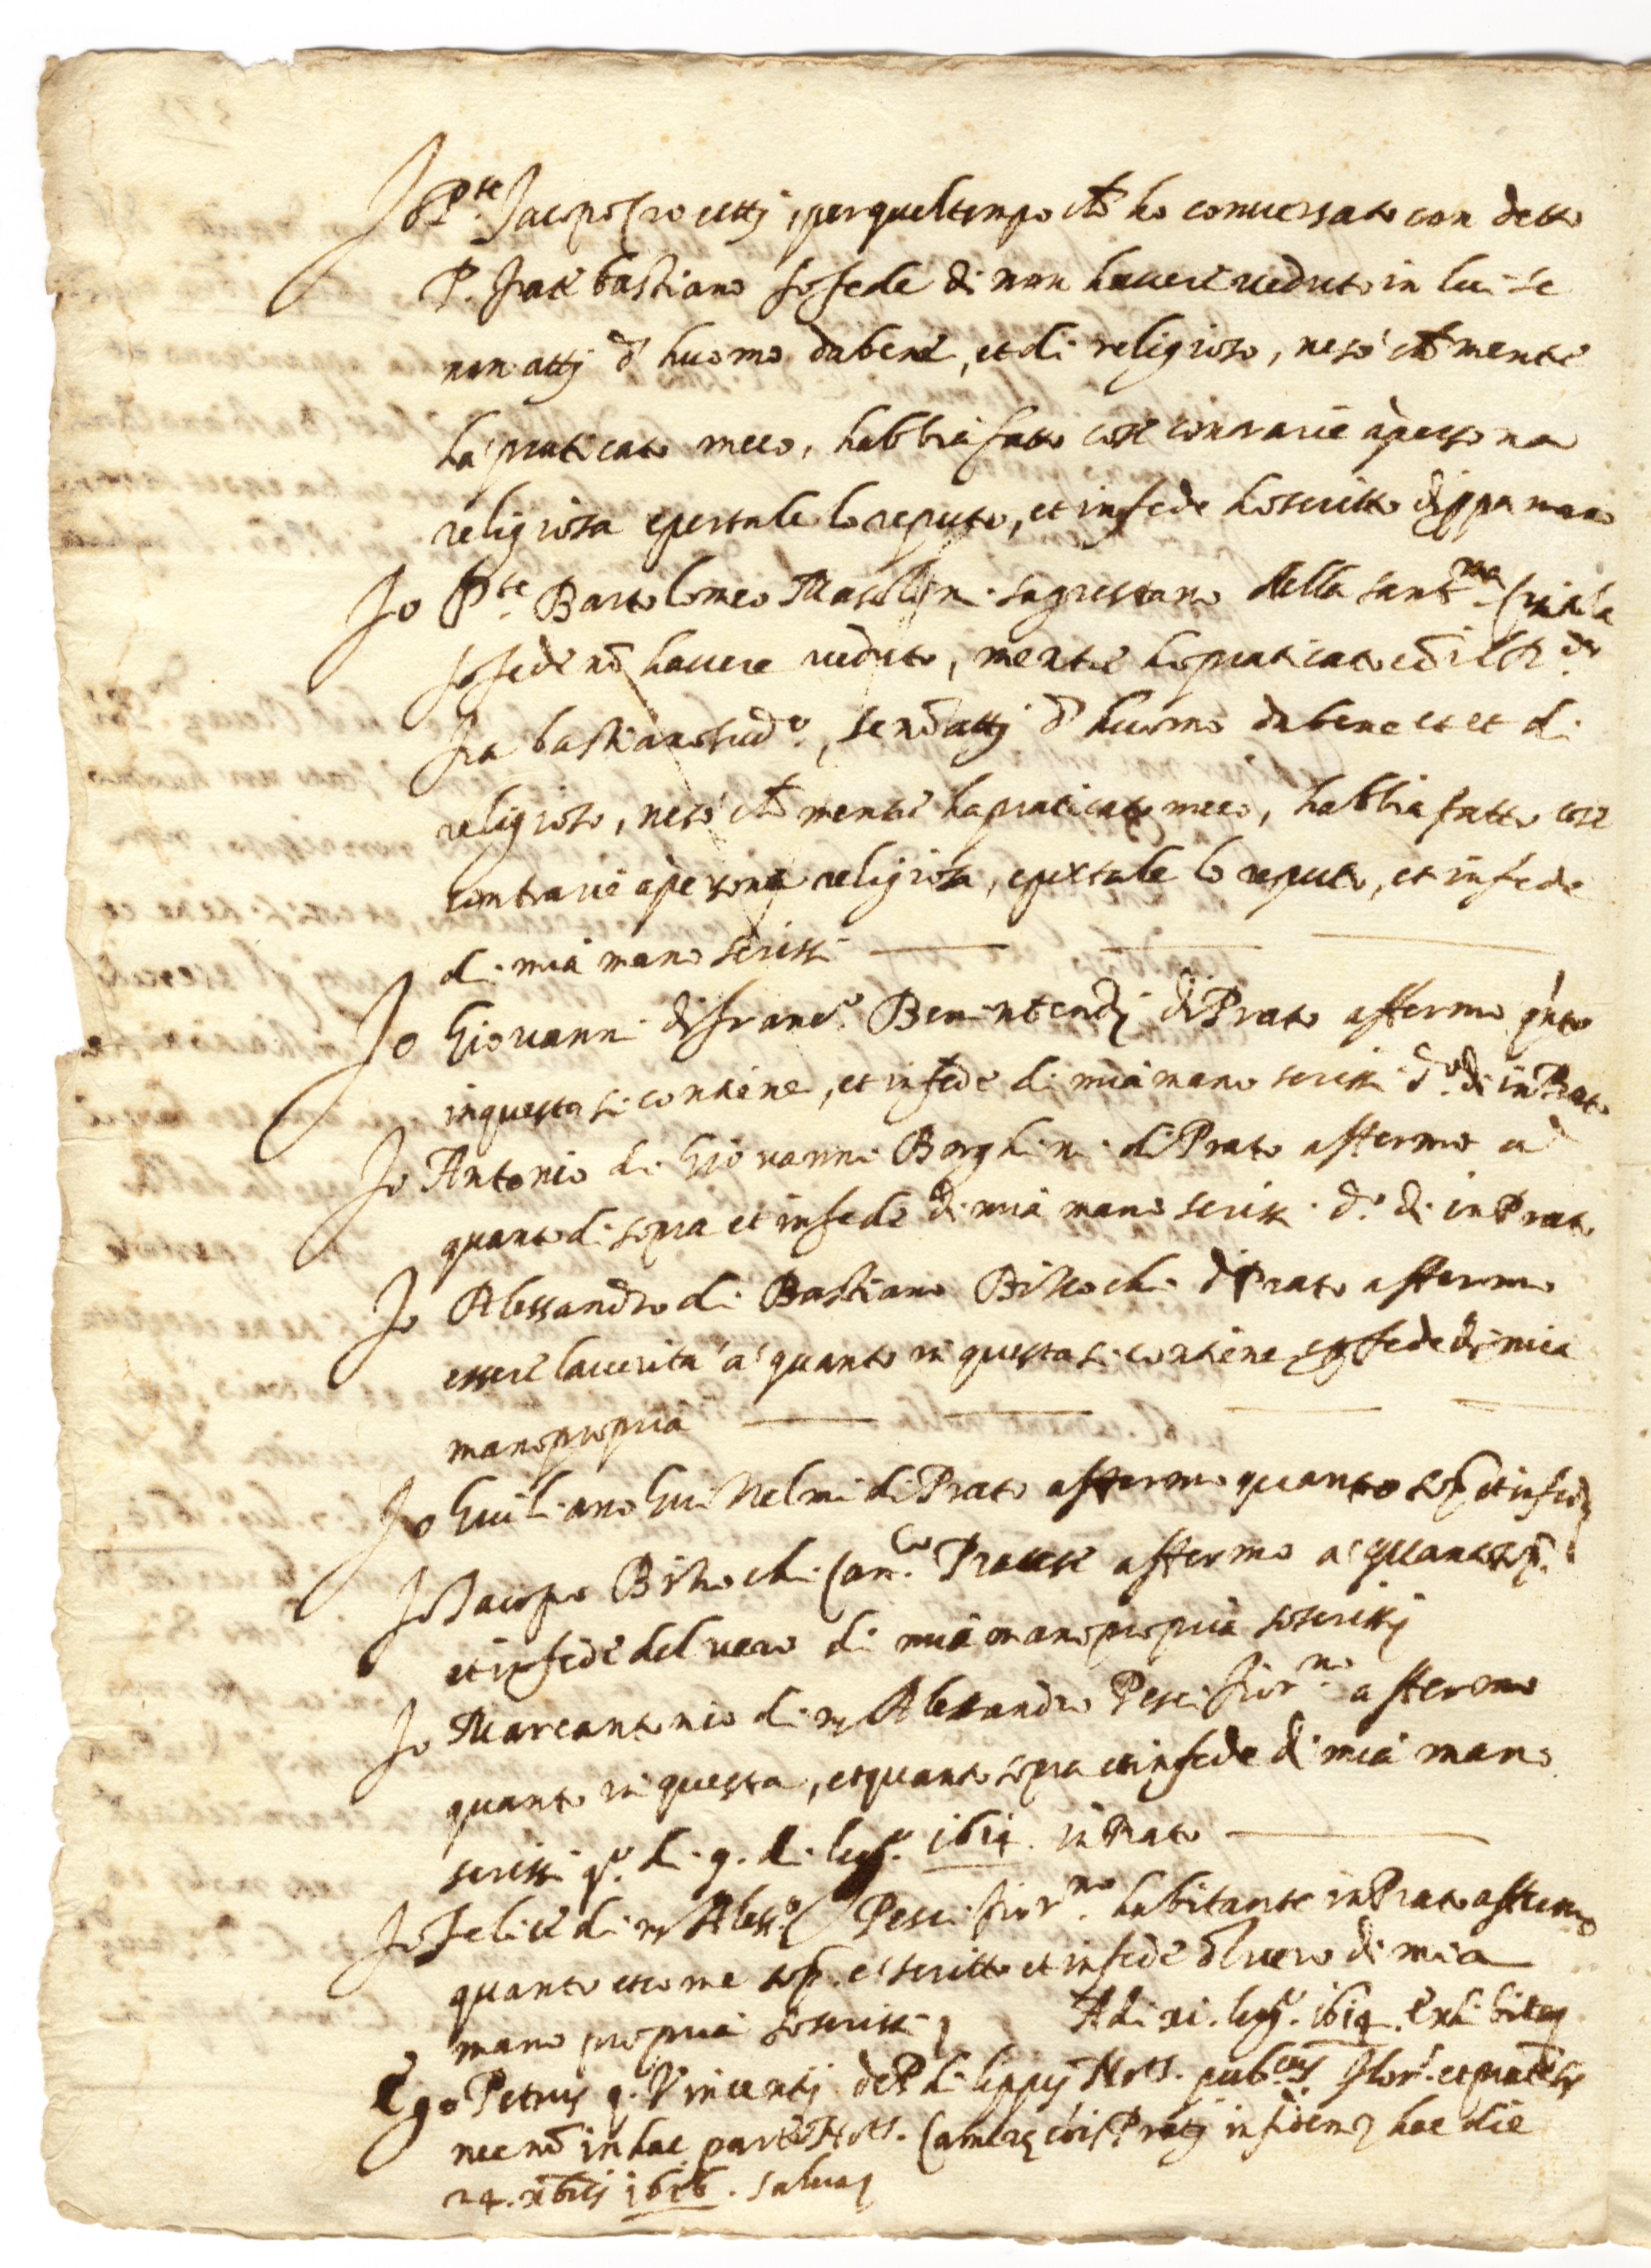 Io P.te Jacopo Crocetti, per quel tempo ch̃ ho conversato con detto
P. frate bastiano fo fede di non havere veduto in lui se
non attj d' huomo dabene, et di religioso, ne so ch̃ mentre
ha praticato meco, habbia fatto cose contrarie à persona
religiosa e per tale lo reputo, et in fede ho scritto di ppa mano
Io P.te Bartolomeo sagrestano della sant.ma
fo fede nõ havere veduto, mentre ho praticato cõ il
fra bastiano sud.o, se nõ attj d' huomo dabene et et di
religioso, ne so ch̃ mentre ha praticato meco, habbia fatto cose
contrarie a persona religiosa, e per tale lo reputo, et in fede
di mia mano scrissi
Io Giovanni di franc.o Benintendj di Prato affermo q̃nto
in questa si contiene, et in fede di mia mano scrissi d.o dì in Prato
Io Antonio di Giovanni Borghini di Prato affermo a
quanto di sopra et in fede di mia mano scrissi d.o dì in Prato
Io Alessandro di Bastiano di Prato affermo
essere la verita a quanto in questa si contiene fede di mia
mano propria
Io Giuliano di Prato affermo quanto sop.a et in fede
Io Jacopo Can.co Pratese affermo a quanto sop.a
et in fede del vero di mia mano propria soscrissj
Io Marcantonio di m Alessandro Pesci fior.no affermo
quanto in questa, et quanto sopra et in fede di mia mano
scrissi q.o dì 9. di lug.o 1614 in Prato
Io Felice di m Aless.o Pesci fior.no habitante in Prato affermo
quanto et come sop.a è scritto et in fede del vero di mia
mano propria soscrissi Adi xi. lug.o 1614.
Ego Petrus q. Vincentij de Philippis Not.s pub.cus Flor.s et
nec nõ in hac parte Not.s Prati in fidem hac die
24. xbris 1616.